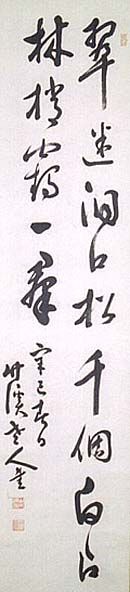 翠迷洞口松千個白占
林梢鶴一群
辛巳春日
竹溪老人書